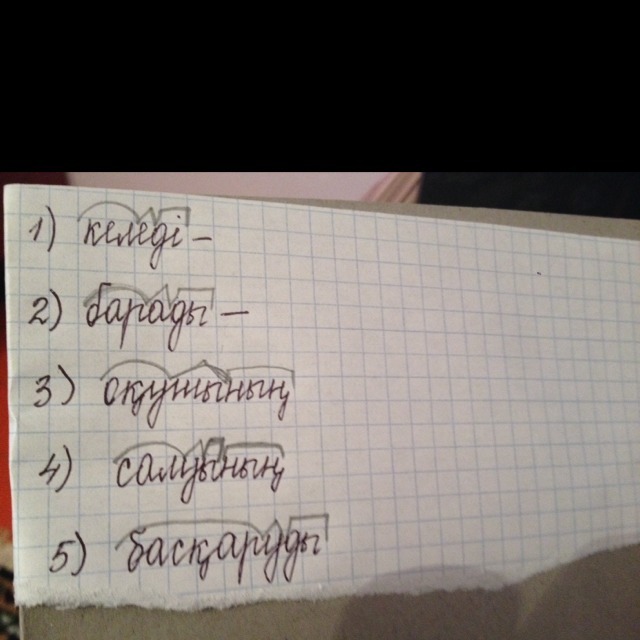 1) келеді –
2) барады –
3) оқушының
4) салуының
5) басқаруды